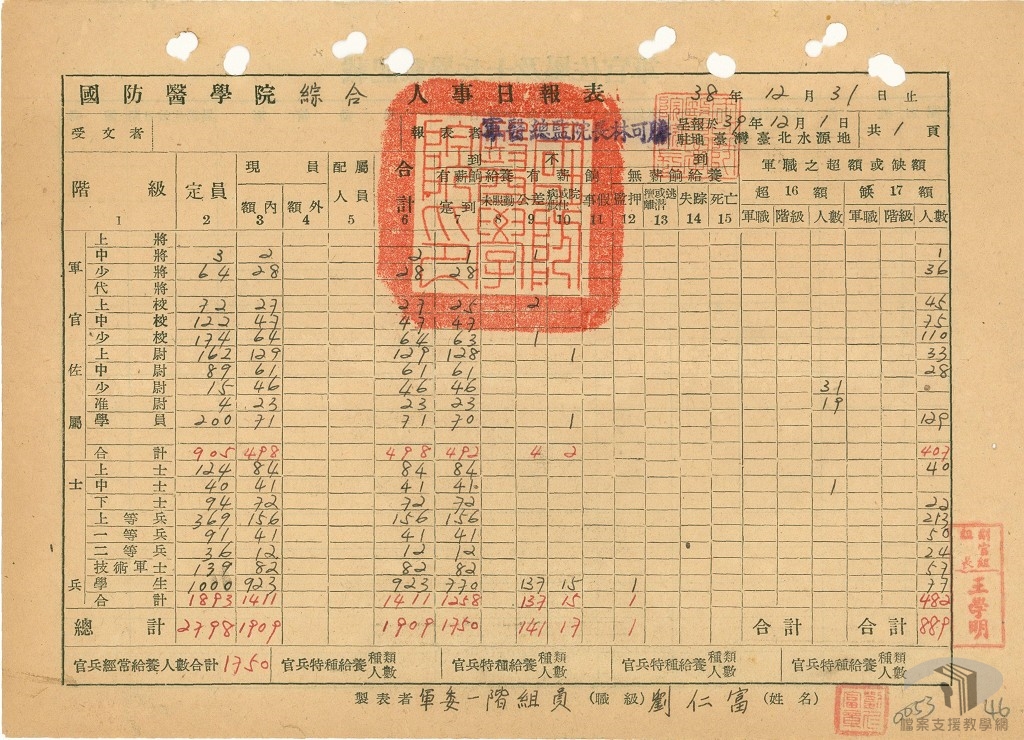 國防醫學院綜合人事日報表 38年12月31日止
受文者 報表者 軍醫總監院長林可勝 呈報於39年12月1日 駐地臺灣臺北水源地 共1頁
階級 定員 現員 配屬人員 合計 到 不到 軍職之超額或缺額
額內 額外 有薪餉給養 有薪餉 無薪餉給養 超16額 缺17額
實到 公差 事假 監押 失踪 死亡 軍職 階級 人數 軍職 階級 人數
1 2 3 4 5 6 7 8 9 10 11 12 13 14 15
軍官佐屬
上將
中將 3 2 2 1 1 1
少將 64 28 28 28 36
代將
上校 72 27 27 25 2 45
中校 122 47 47 47 75
少校 174 64 64 63 1 110
上尉 162 129 129 128 1 33
中尉 89 61 61 61 28
少尉 15 46 46 46 31
准尉 4 23 23 23 19
學員 200 71 71 70 1 129
合計 905 498 498 492 4 2 407
士兵
上士 124 84 84 84 40
中士 40 41 41 41 1
下士 94 72 72 72 22
上等兵 369 156 156 156 213
一等兵 91 41 41 41 50
二等兵 36 12 12 12 24
技術軍士 139 82 82 82 57
學生 1000 923 923 770 137 15 1 77
合計 1893 1411 1411 1258 137 15 1 482
總計 2798 1909 1909 1750 141 17 1 合計 合計 889
官兵經常給養人數合計1750 官兵特種給養種類人數 官兵特種給養種類人數 官兵特種給養種類人數 官兵特種給養種類人數
製表者 軍委一階組員 (職級) 劉仁富 (姓名)
副官組組長
王學明
0053 46
檔案支援教學網